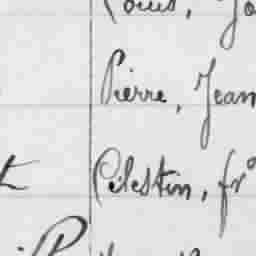 Louis, Jo
Pierre, Jean
t Célestin, frº